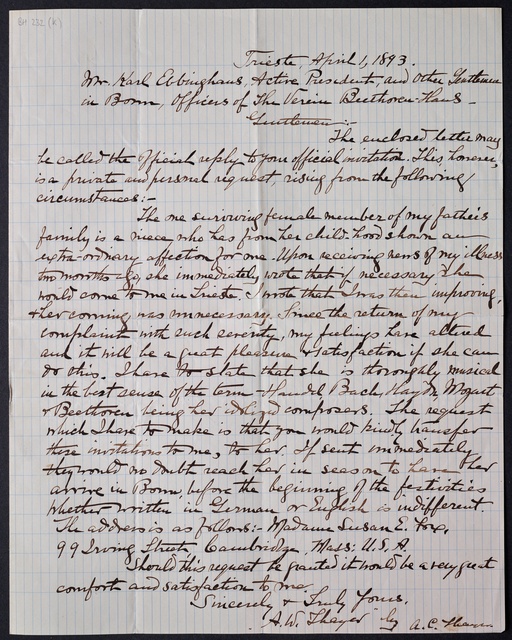 BH 232 (K)
Trieste, April 1, 1893.
Mr. Karl Ebbinghaus, Active President, and other Gentlemen
in Bonn, Officers of The Verein Beethoven-Haus -
Gentlemen:-
The enclosed letter may
be called the official reply to your official invitation. This, however,
is a private and personal request, rising from the following
circumstances:-
The one surviving female member of my father's
family is a niece who has from her child-hood shown an
extra-ordinary affection for me. Upon receiving news of my illness
two months ago, she immediately wrote that if necessary she
would come to me in Trieste, I wrote that I was then improving,
& her coming was unnecessary. Since the return of my
complaint with such severity, my feelings have altered
and it will be a great pleasure & satisfaction if she can
do this. I have to state that she is thoroughly musical
in the best sense of the term - Handel, Bach, Haydn, Mozart
& Beethoven being her idolized composers. The request
which I have to make is that you would kindly transfer
these invitations to me, to her. If sent immediately
they would no doubt reach her in season to have her
arrive in Bonn, before the beginning of the festivities
Whether written in German or English is indifferent.
The address is as follows:- Madame Susan E. Fox,
99 Irving Street, Cambridge, Mass: U.S.A.
Should this request be granted it would be a very great
comfort and satisfaction to me.
Sincerely & Truly Yours,
A.W. Thayer by A.C.